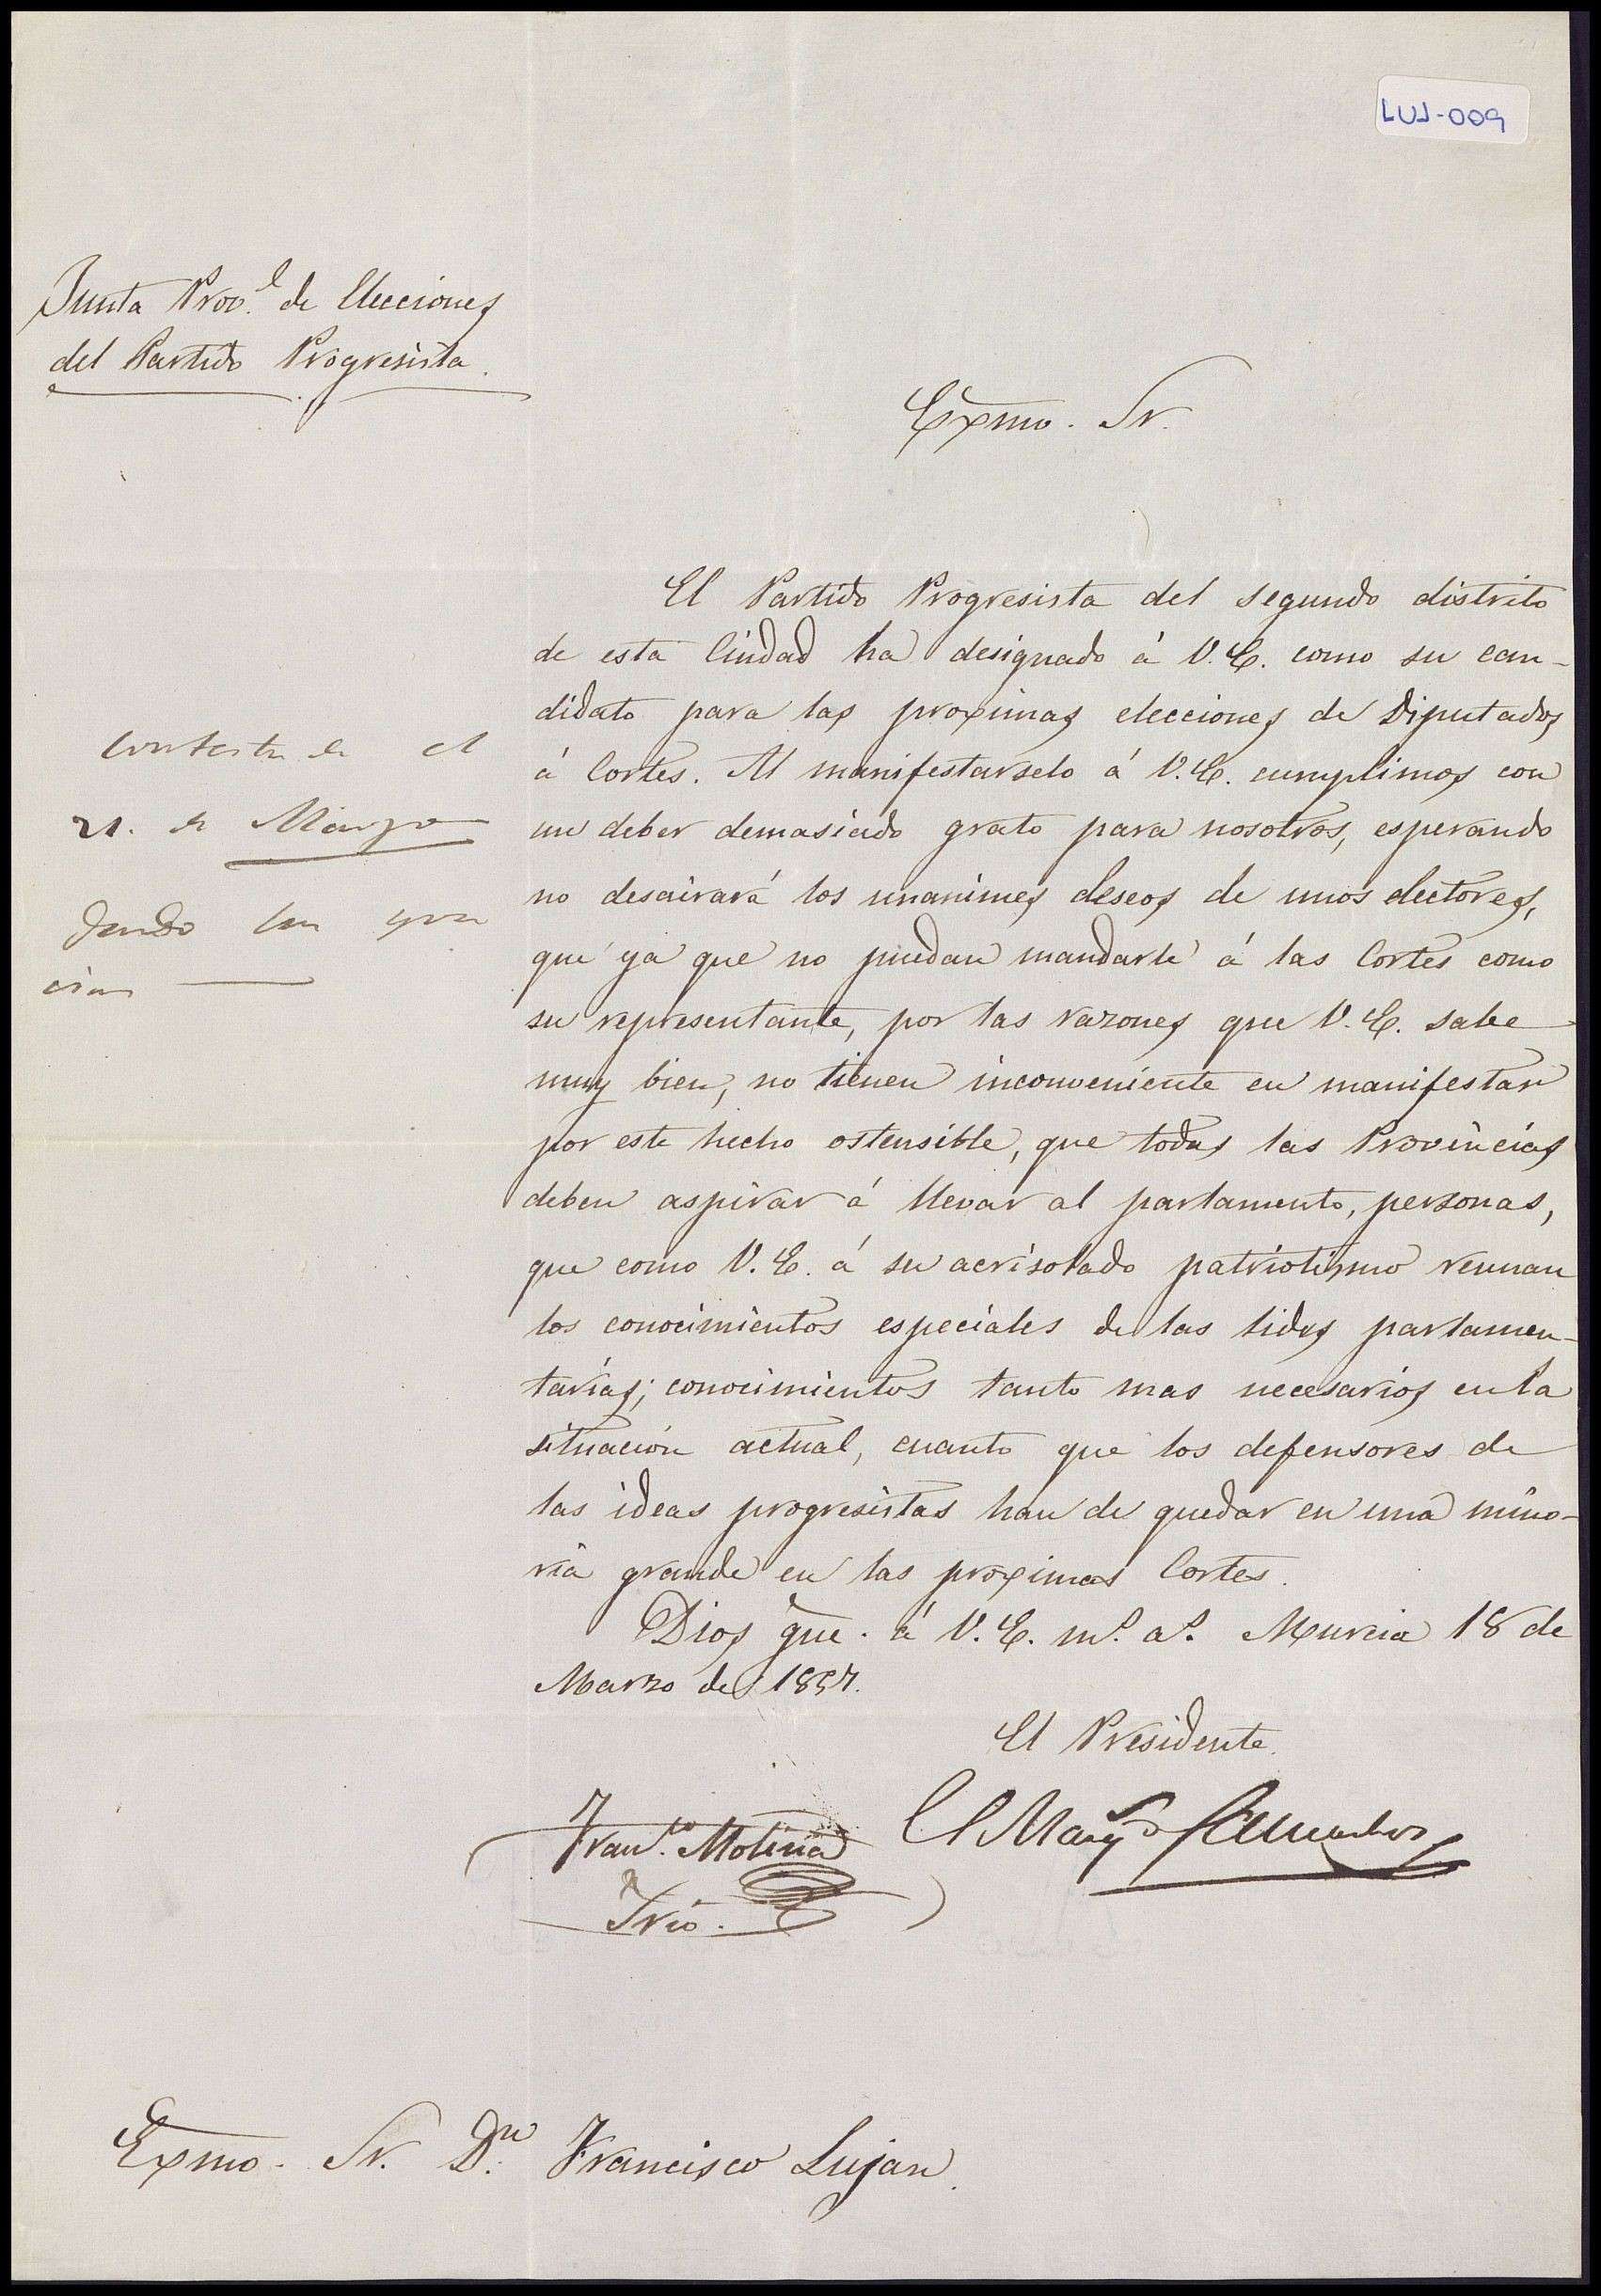 LUJ-009
Junta Prov.l de Elecciones
del Partido Progresista.
Exmo. Sr.
El Partido Progresista del segundo distrito
de esta Ciudad ha designado á V.E. como su can-
didato para las proximas elecciones de Diputados
á Cortes. Al manifestarselo á V.E. cumplimos con
un deber demasiado grato para nosotros, esperando
no desairará los unanimes deseos de unos electores,
que ya que no puedan mandarle á las Cortes como
su representante, por las razones que V.E. sabe
muy bien, no tienen inconveniente en manifestar
por este hecho ostensible, que todas las Provincias
deben aspirar á llevar al parlamento, personas,
que como V.E. á su acrisolado patriotismo reunan
los conocimientos especiales de las lides parlamen-
tarias; conocimientos tanto mas necesarios en la
situacion actual, cuanto que los defensores de
las ideas progresistas han de quedar en una mino-
ria grande en las proximas Cortes.
Dios gue. á V.E. m.s a.s Murcia 18 de
Marzo de 1857.
contestada el
21. de Marzo
dando las gra
cias
El Presidente.
Fran.co Molina
El Marq.s
Srio.
Exmo. Sr. D.n Francisco Lujan.